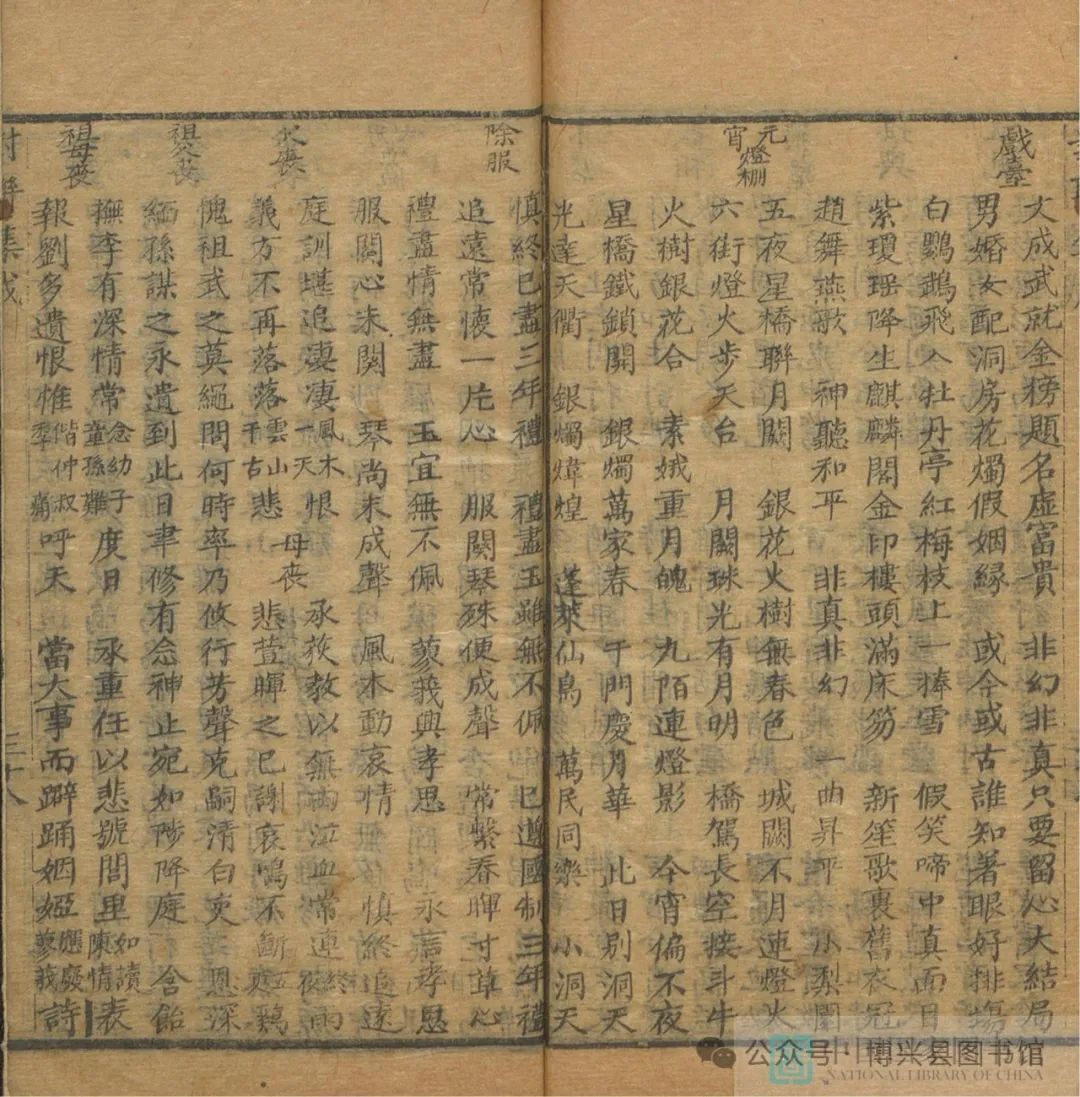 戲臺
文成武就金榜題名虛富貴　非幻非真只要留心大結局
男婚女配洞房花燭假姻緣　或今或古誰知著眼好排塲
白鸚鵡飛入牡丹亭紅梅枝上一捧雪　假笑啼中真面目
紫瓊瑶降生麒麟閣金印樓頭滿床笏　新笙歌裏舊衣冠
趙舞燕歌　神聽和平　非真非幻　一曲昇平　小梨園
元宵燈棚
五夜星橋聯月闕　銀花火樹無春色　城闕不月連燈火
六街燈火步天台　月闕珠光有月明　橋駕長空接斗牛
火樹銀花合　素娥重月魄　九陌連燈影　今宵偏不夜
星橋鐵鎖開　銀燭萬家春　千門慶月華　此日别洞天
光達天衢　銀燭煒煌　蓬萊仙島　萬民同樂　小洞天
除服
慎終已盡三年禮　禮盡玉雖無不佩　已遵國制三年禮
追遠常懷一片心　服闋琴殊便成聲　常縈春暉寸草心
禮盡情無盡　玉宜無不佩　蓼莪興孝思　永言孝思
服闋心未闋　琴尚未成聲　風木動哀情　慎終追遠
父喪
庭訓堪追淒凄風木一天恨　承荻教以無
義方不再落落雲山千古悲　母喪　悲萱暉之已謝哀鳴不斷五
祖父喪
愧祖武之莫繩問何時率乃攸行芳聲克嗣清白吏　恩深
緬孫謀之永遺到此日聿修有念神止宛如陟降庭　含飴
祖母喪
撫李有深情常念幼子童孫難度日　承重任以悲號閭里如讀陳情表
報劉多遺恨惟偕仲叔季痛呼天　當大事而躃踊姻婭應廢蓼莪詩
對聯集成
三十八
公众号·博兴县图书馆
NATIONAL LIBRARY OF CHINA